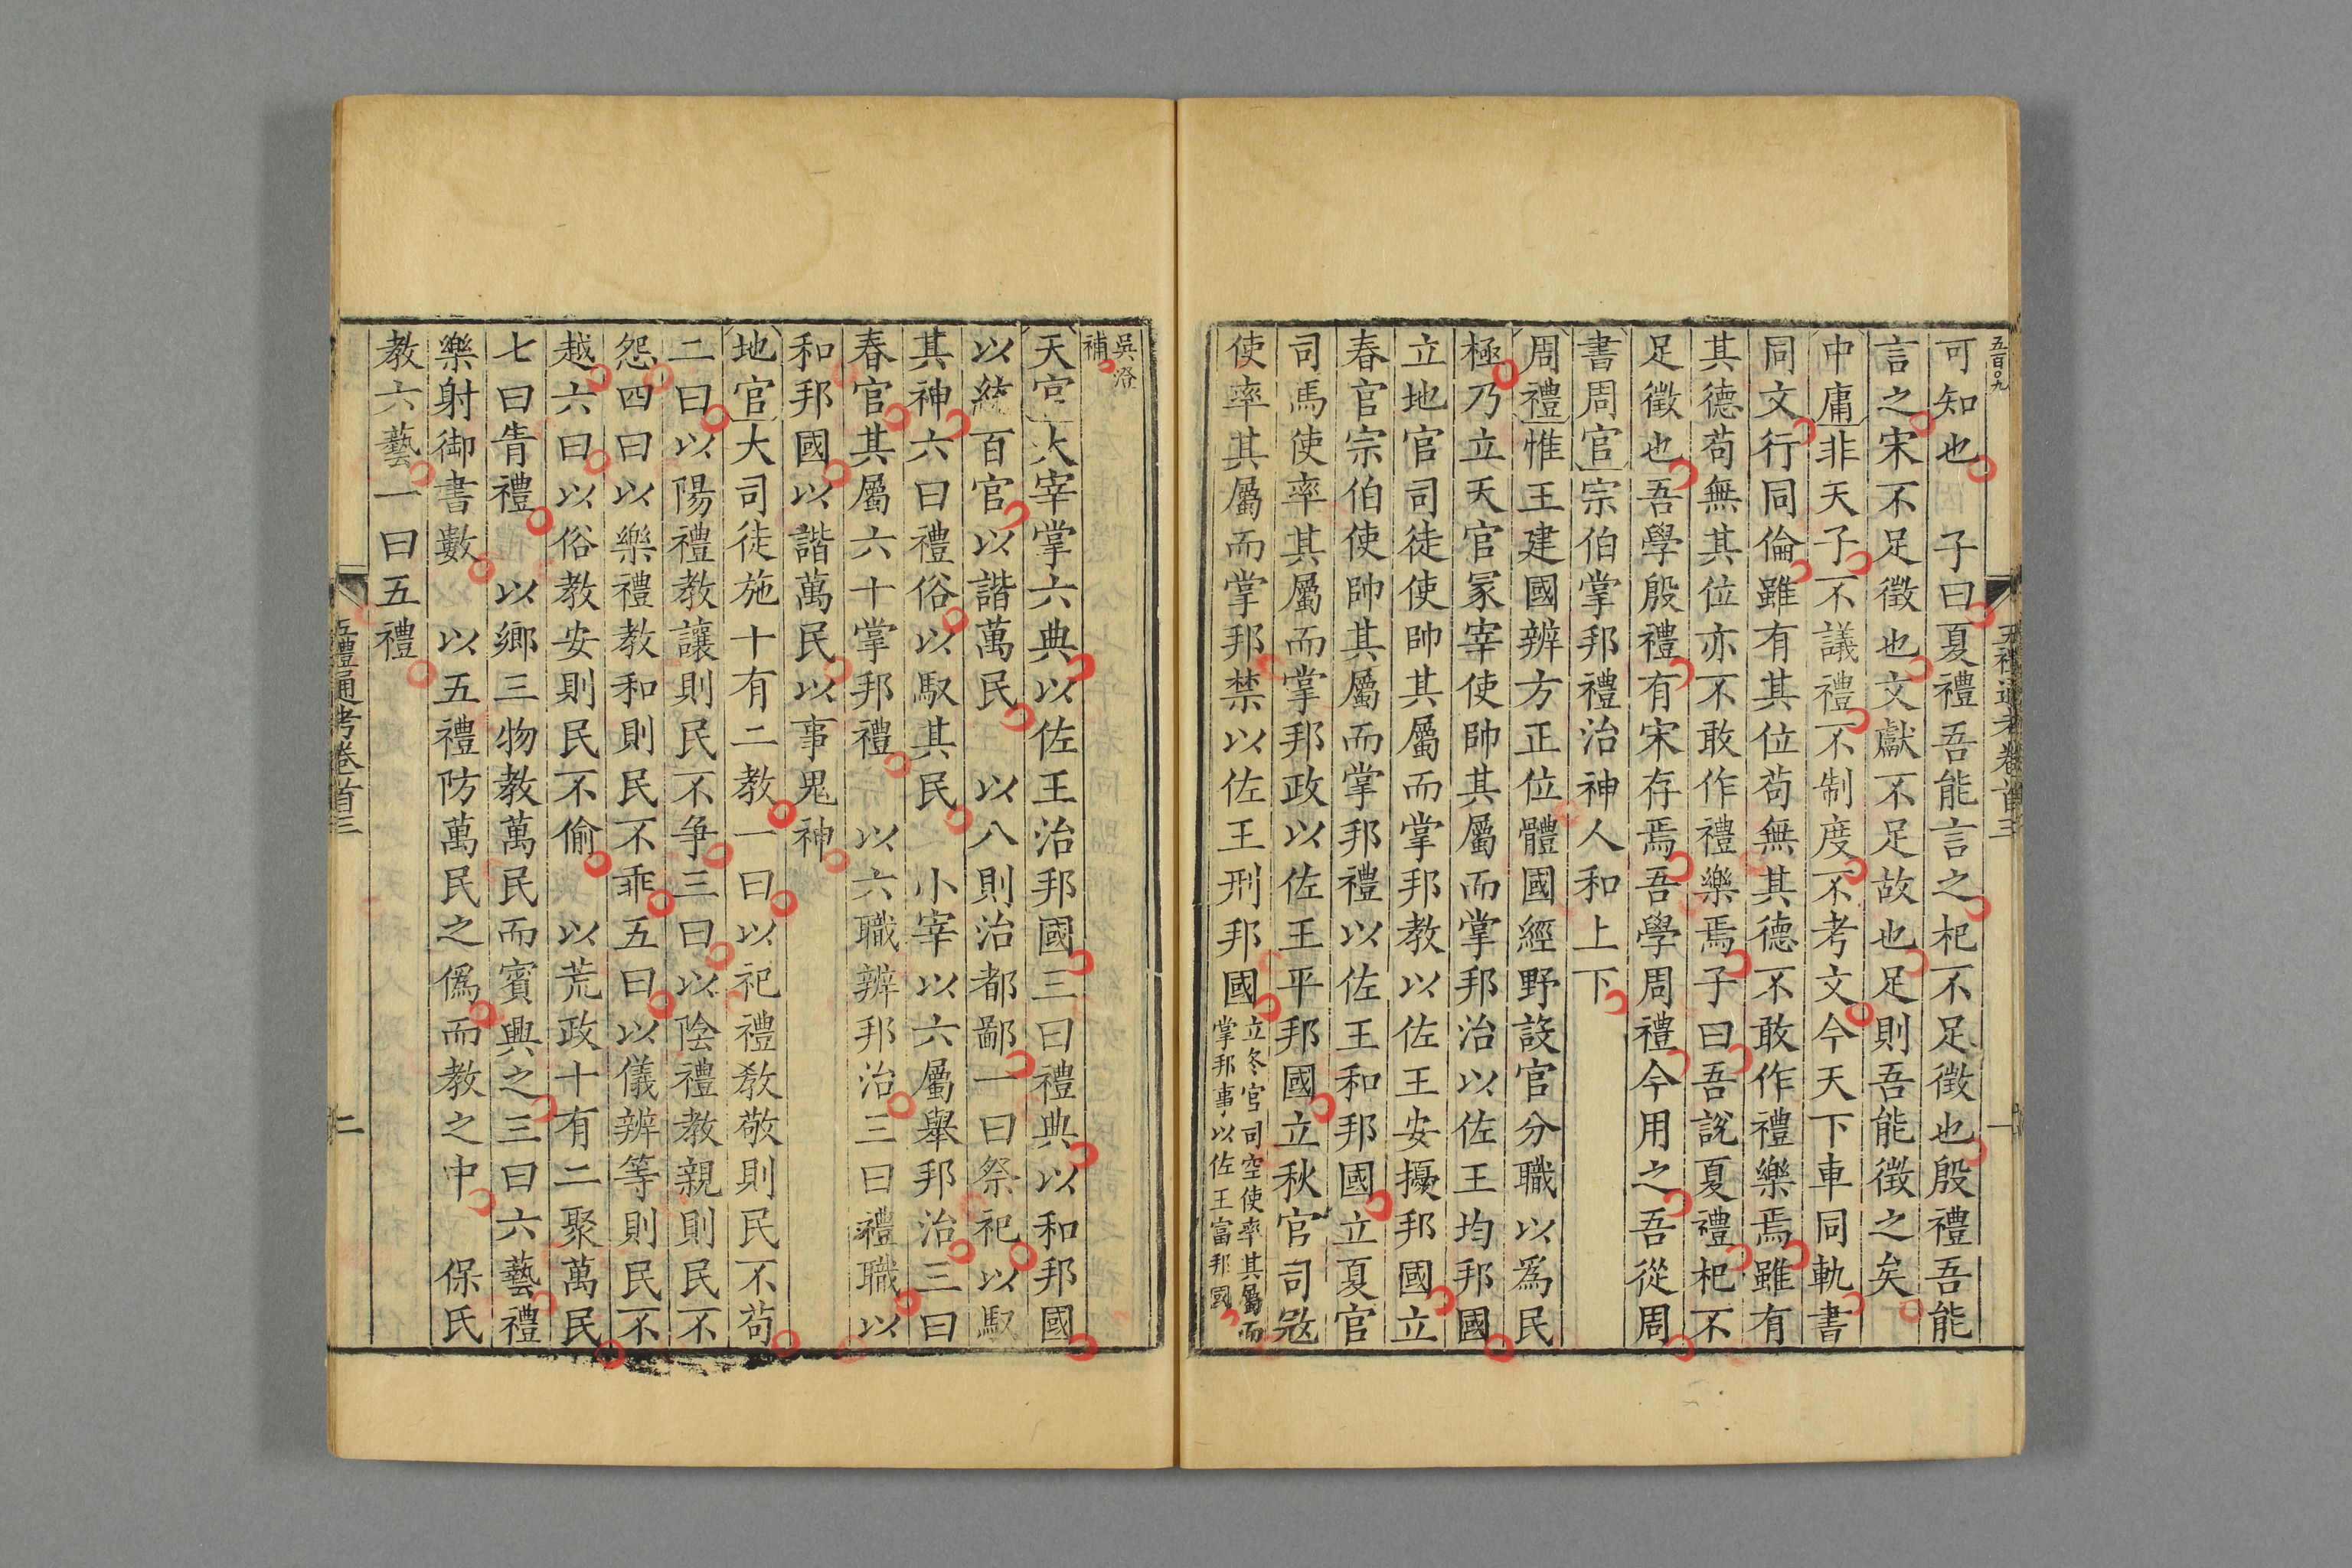 五百〇九
五禮通考卷首三
一
可知也　子曰夏禮吾能言之杞不足徵也殷禮吾能
言之宋不足徵也文獻不足故也足則吾能徵之矣
中庸非天子不議禮不制度不考文今天下車同軌書
同文行同倫雖有其位苟無其德不敢作禮樂焉雖有
其德苟無其位亦不敢作禮樂焉子曰吾說夏禮杞不
足徵也吾學殷禮有宋存焉吾學周禮今用之吾從周
書周官宗伯掌邦禮治神人和上下
周禮惟王建國辨方正位體國經野設官分職以為民
極乃立天官冢宰使帥其屬而掌邦治以佐王均邦國
立地官司徒使帥其屬而掌邦教以佐王安擾邦國立
春官宗伯使帥其屬而掌邦禮以佐王和邦國立夏官
司馬使率其屬而掌邦政以佐王平邦國立秋官司寇
使率其屬而掌邦禁以佐王刑邦國
立冬官司空使率其屬而
掌邦事以佐王富邦國
吳澄
補
天官大宰掌六典以佐王治邦國三曰禮典以和邦國
以統百官以諧萬民　以八則治都鄙一曰祭祀以馭
其神六曰禮俗以馭其民　小宰以六屬舉邦治三曰
春官其屬六十掌邦禮　以六職辨邦治三曰禮職以
和邦國以諧萬民以事鬼神
地官大司徒施十有二教一曰以祀禮教敬則民不苟
二曰以陽禮教讓則民不爭三曰以陰禮教親則民不
怨四曰以樂禮教和則民不乖五曰以儀辨等則民不
越六曰以俗教安則民不偷　以荒政十有二聚萬民
七曰眚禮　以鄉三物教萬民而賓興之三曰六藝禮
樂射御書數　以五禮防萬民之僞而教之中　保氏
教六藝一曰五禮
五禮通考卷首三
二